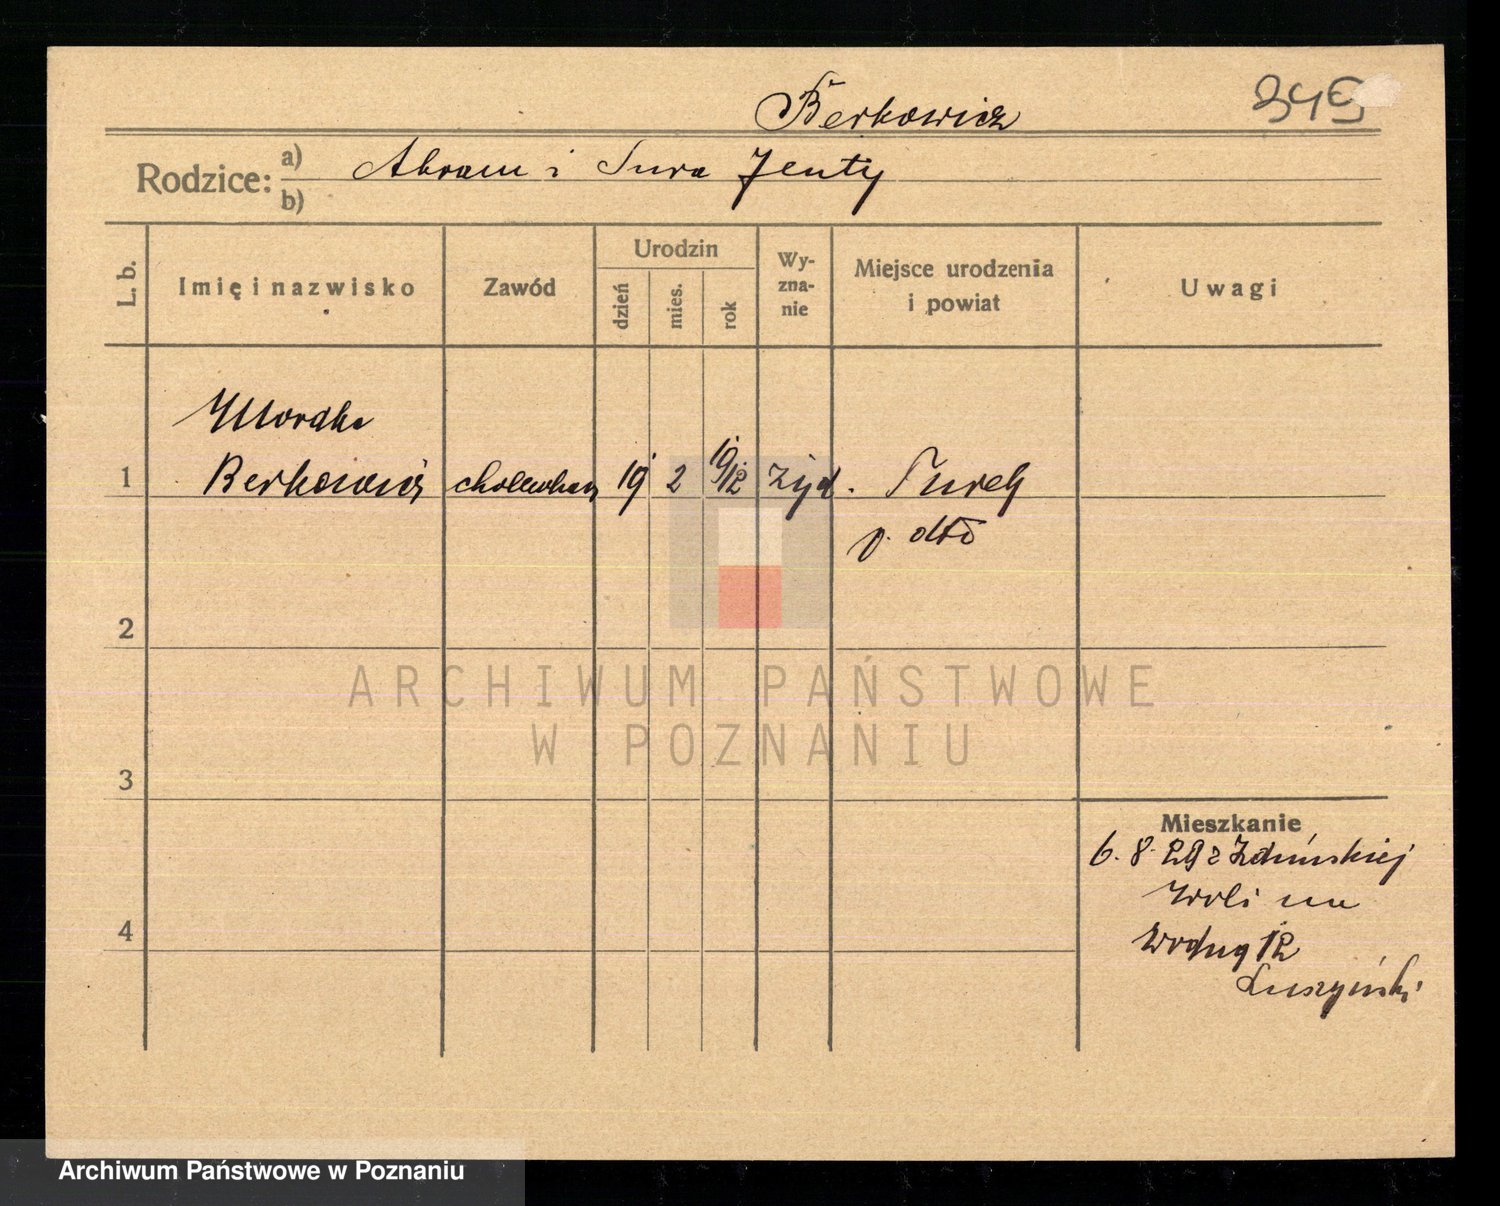 Berkowicz
345
Rodzice: a) Abram i Sura Jenty
b)
L. b.
Imię i nazwisko
Zawód
Urodzin
dzień
mies.
rok
Wy-
zna-
nie
Miejsce urodzenia
i powiat
Uwagi
Mordka
1 Berkowicz cholewkarz 19 2 1912 żyd. Turek
p. dtto
2
ARCHIWUM PAŃSTWOWE
W POZNANIU
3
Mieszkanie
6. 8. 29 z Zduńskiej
Woli na
4
Wodną 12
Łuszyński
Archiwum Państwowe w Poznaniu